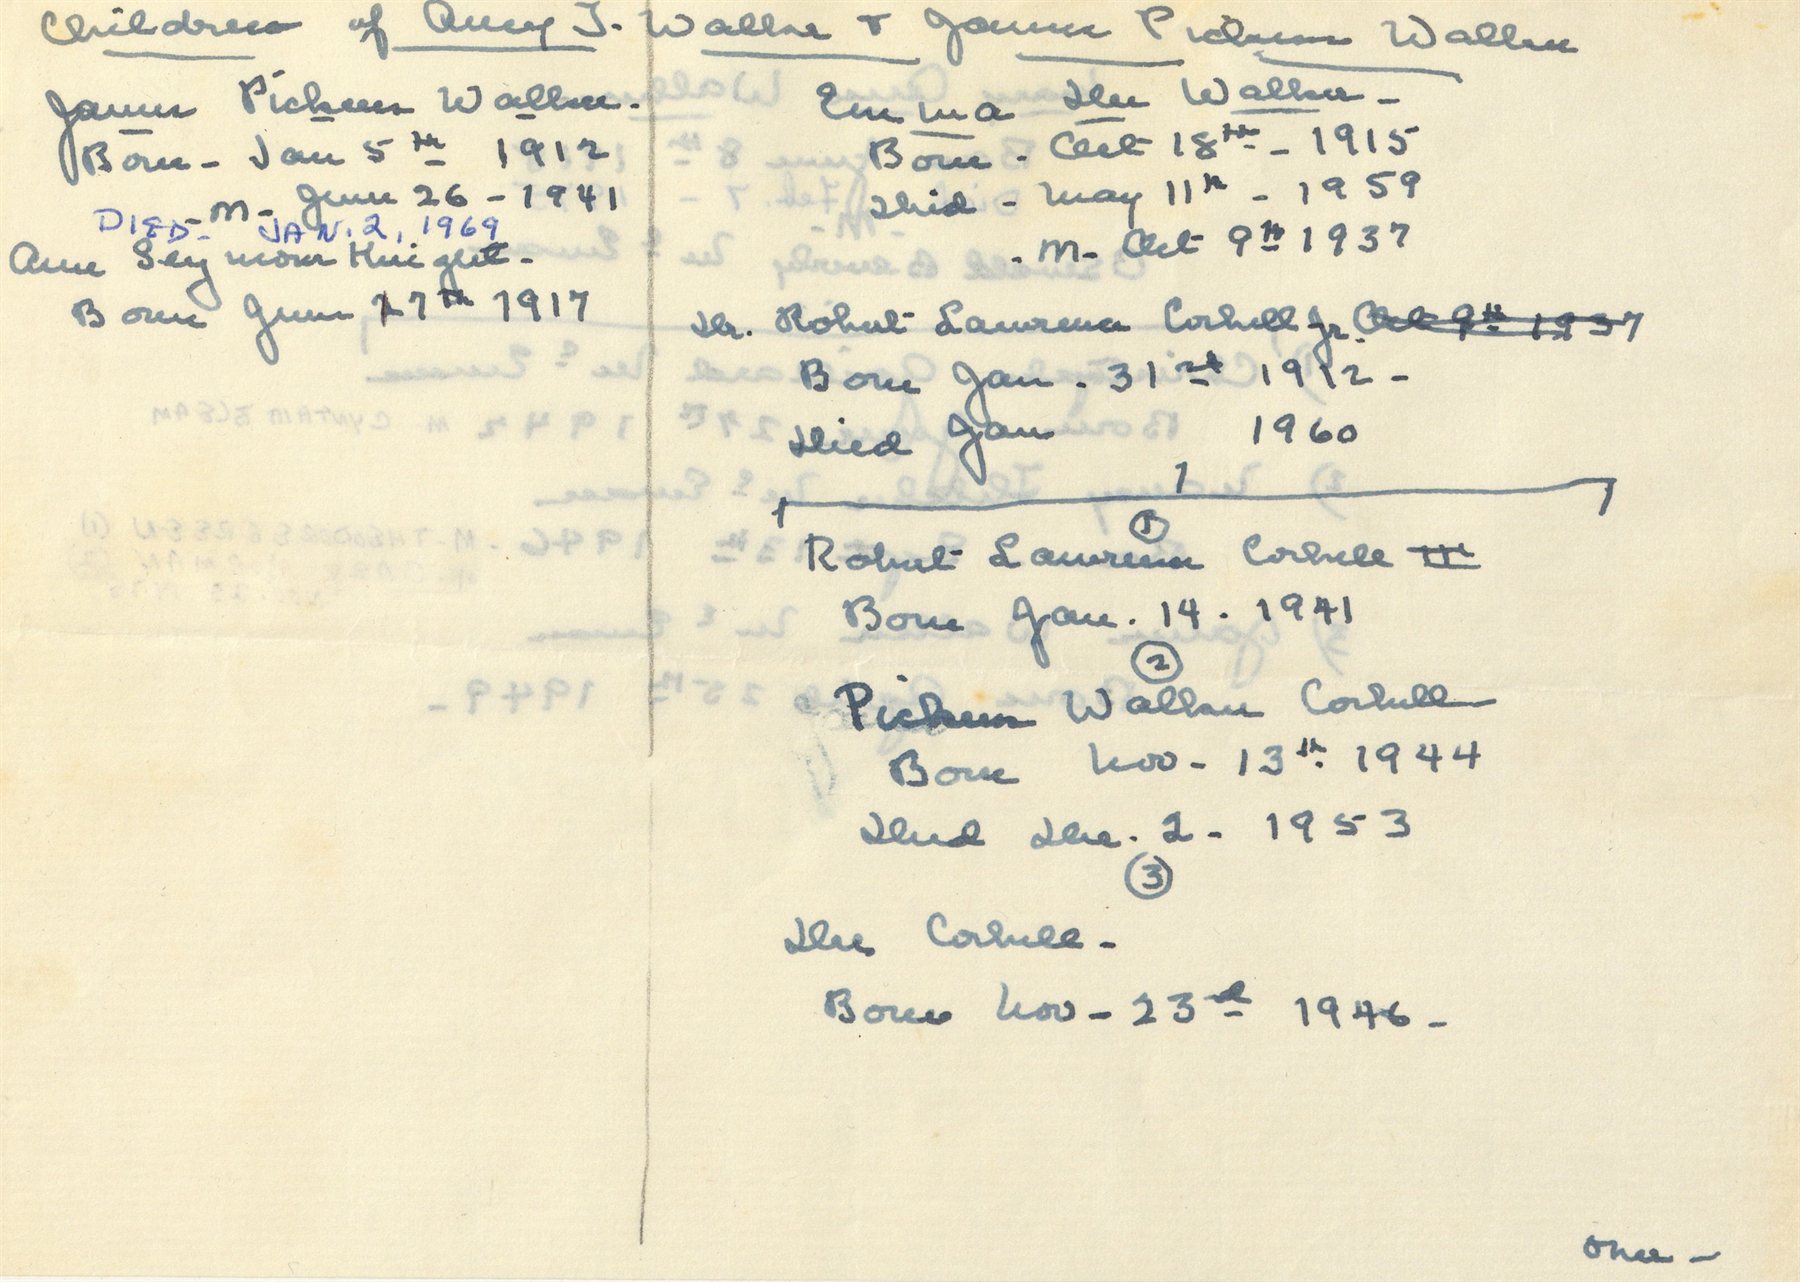 Children of Amey T. Walker & James Pickens Walker
James Pickens Walker.
Born - Jan 5th 1912
M - June 26 - 1941
DIED - JAN. 2, 1969
Ann Seymour Knight -
Born June 17th 1917
Emma Dee Walker -
Born - Oct 18th - 1915
Died - May 11th - 1959
- M - Oct 9th 1937
Dr. Robert Lawrence Corbell Jr. Oct 9th 1937
Born Jan. 31st 1912 -
Died Jan 1960
1
Robert Lawrence Corbell III
Born Jan. 14. 1941
2
Pickens Walker Corbell
Born Nov - 13th. 1944
Died Dec. 2 - 1953
3
Dee Corbell -
Born Nov - 23rd 1946 -
over -